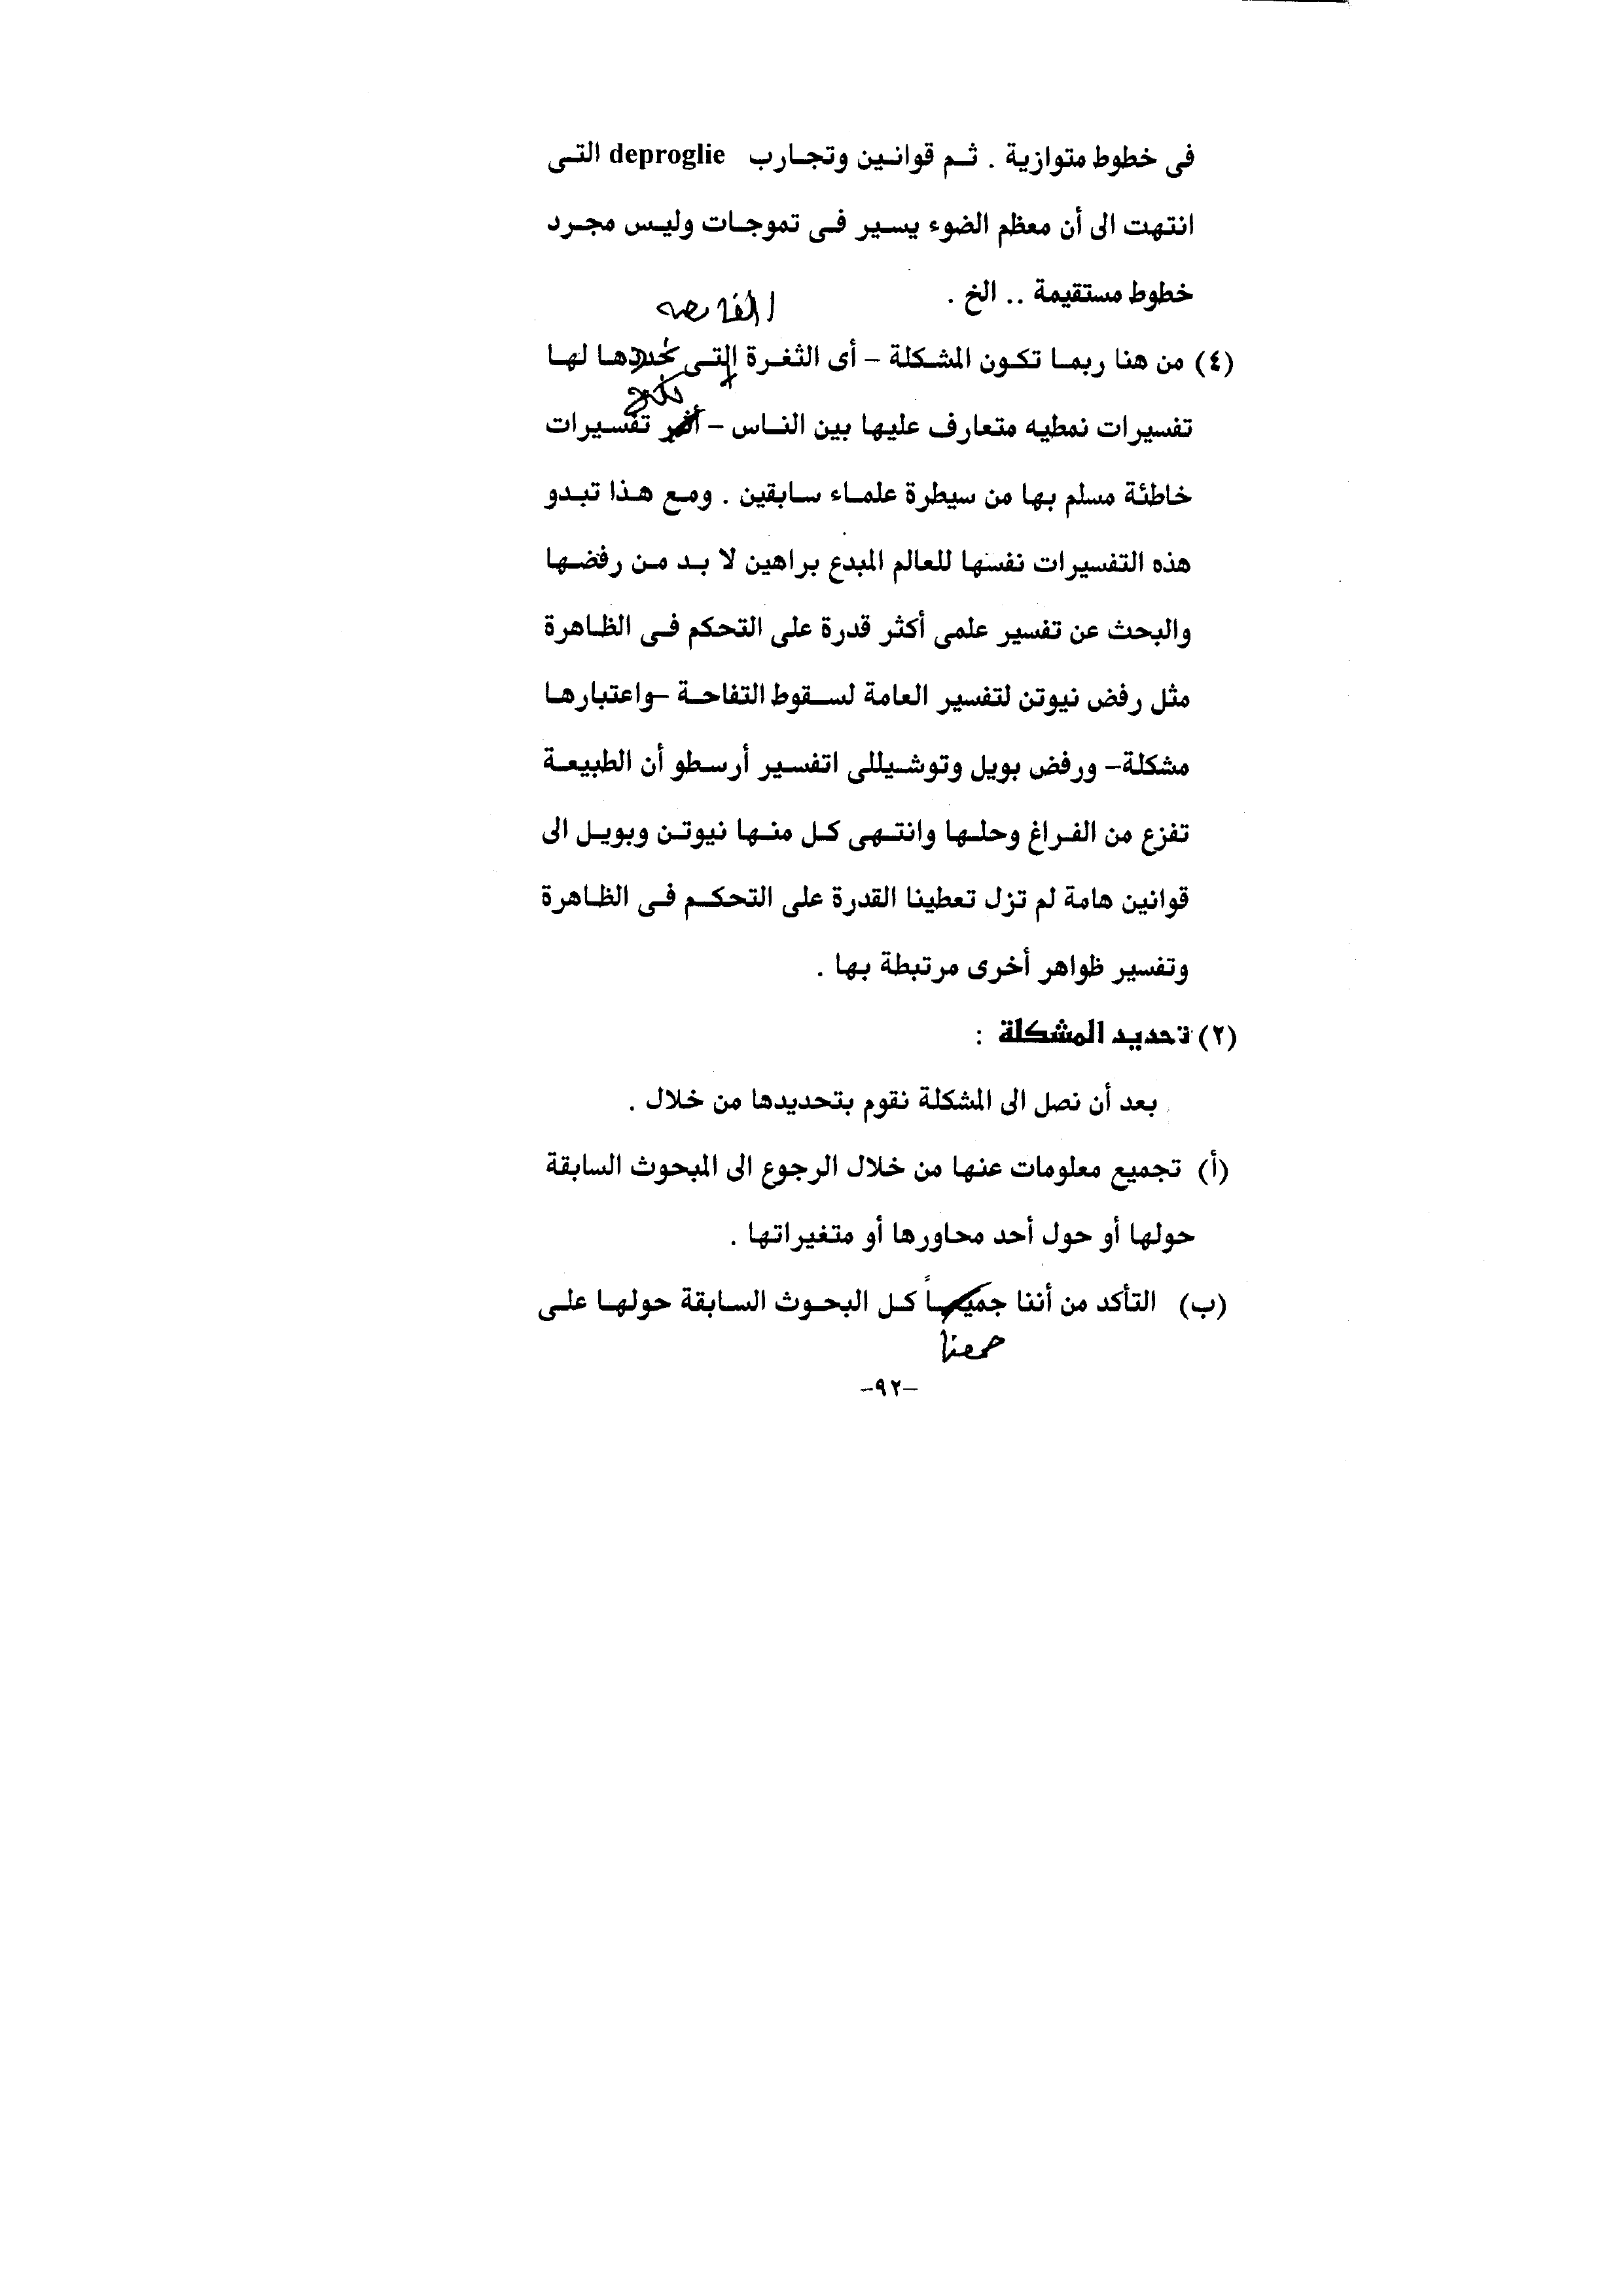 فى خطوط متوازية . ثم قوانين وتجارب deproglie التى
انتهت الى أن معظم الضوء يسير فى تموجات وليس مجرد
خطوط مستقيمة .. الخ .
(٤) من هنا ربما تكون المشكلة – أى الثغرة التى نحددها لها
تفسيرات نمطيه متعارف عليها بين الناس – تفسيرات
خاطئة مسلم بها من سيطرة علماء سابقين . ومع هذا تبدو
هذه التفسيرات نفسها للعالم المبدع براهين لا بد من رفضها
والبحث عن تفسير علمى أكثر قدرة على التحكم فى الظاهرة
مثل رفض نيوتن لتفسير العامة لسقوط التفاحة –واعتبارها
مشكلة– ورفض بويل وتوشيللى اتفسير أرسطو أن الطبيعة
تفزع من الفراغ وحلها وانتهى كل منها نيوتن وبويل الى
قوانين هامة لم تزل تعطينا القدرة على التحكم فى الظاهرة
وتفسير ظواهر أخرى مرتبطة بها .
(٢) تحديد المشكلة :
بعد أن نصل الى المشكلة نقوم بتحديدها من خلال .
(أ) تجميع معلومات عنها من خلال الرجوع الى المبحوث السابقة
حولها أو حول أحد محاورها أو متغيراتها .
(ب) التأكد من أننا جميعاً كل البحوث السابقة حولها على
جمعنا
–٩٢–